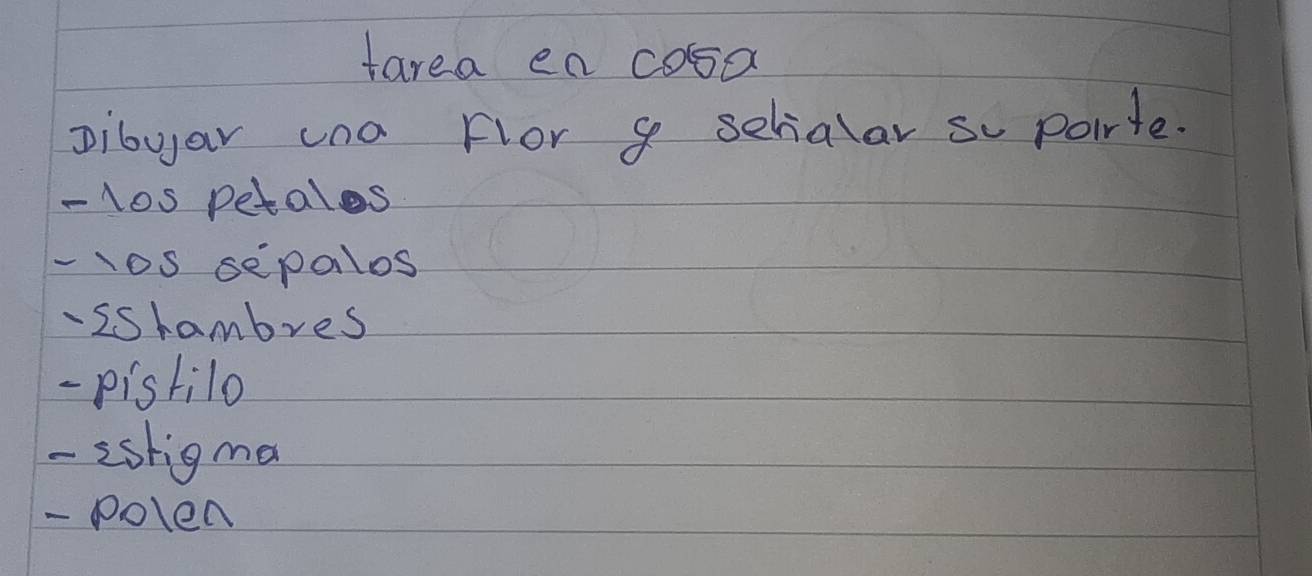 tarea en casa
Dibujar una Flor y señalar su parte.
- los petalos
- los sépalos
- Estambres
- pistilo
- Estigma
- polen